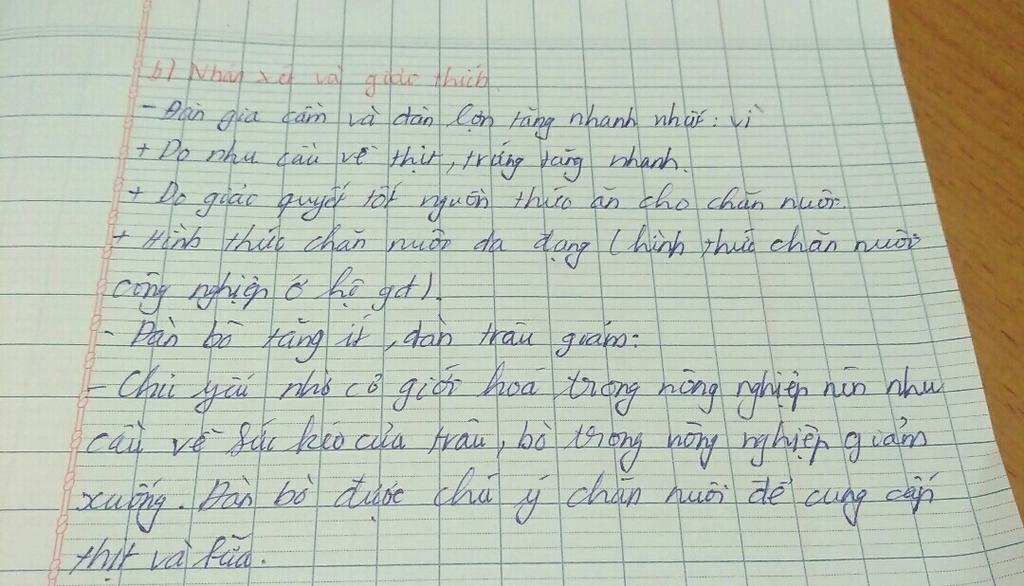 b) Nhận xét và giải thích.
- Đàn gia cầm và đàn lợn tăng nhanh nhất: vì
+ Do nhu cầu về thịt, trứng tăng nhanh.
+ Do giải quyết tốt nguồn thức ăn cho chăn nuôi.
+ Hình thức chăn nuôi đa dạng (hình thức chăn nuôi
công nghiệp ở hộ gđ).
- Đàn bò tăng ít, đàn trâu giảm:
- Chủ yếu nhờ cơ giới hoá trong nông nghiệp nên nhu
cầu về sức kéo của trâu, bò trong nông nghiệp giảm
xuống. Đàn bò được chú ý chăn nuôi để cung cấp
thịt và sữa.